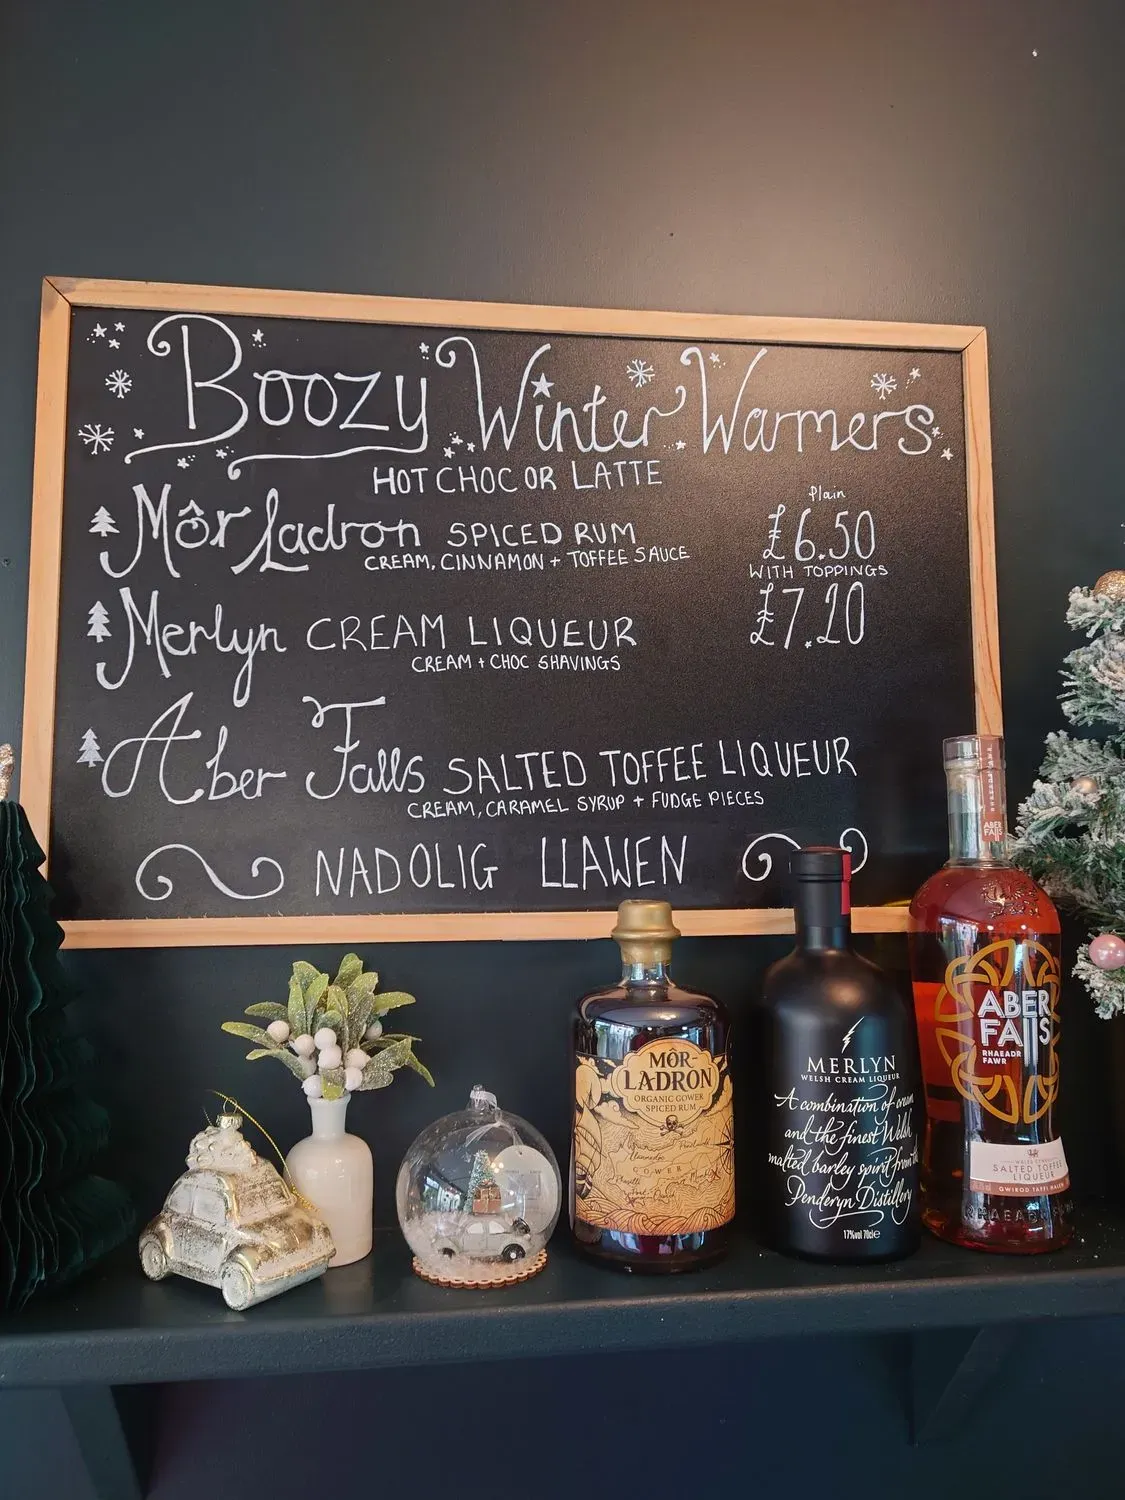 Boozy Winter Warmers
HOT CHOC OR LATTE
Môr Ladron SPICED RUM
CREAM, CINNAMON + TOFFEE SAUCE
Plain
£6.50
WITH TOPPINGS
£7.20
Merlyn CREAM LIQUEUR
CREAM + CHOC SHAVINGS
Aber Falls SALTED TOFFEE LIQUEUR
CREAM, CARAMEL SYRUP + FUDGE PIECES
NADOLIG LLAWEN
MÔR-
LADRON
ORGANIC GOWER
SPICED RUM
GOWER
MERLYN
WELSH CREAM LIQUEUR
A combination of cream
and the finest Welsh
malted barley spirit from the
Penderyn Distillery
17%vol 70cl e
ABER
FALLS
ABER
FALLS
RHAEADR
FAWR
SALTED TOFFEE
LIQUEUR
GWIROD TAFFI HALEN